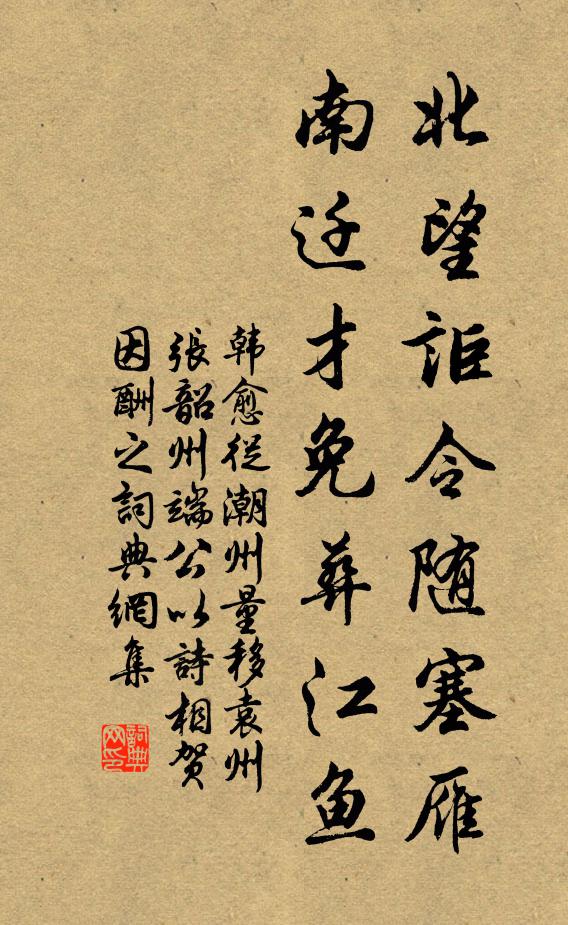 北望詎令随塞雁
南迁才免葬江鱼
韩愈從潮州量移袁州
張韶州端公以詩相贺
因酬之詞典網集
詞典网印